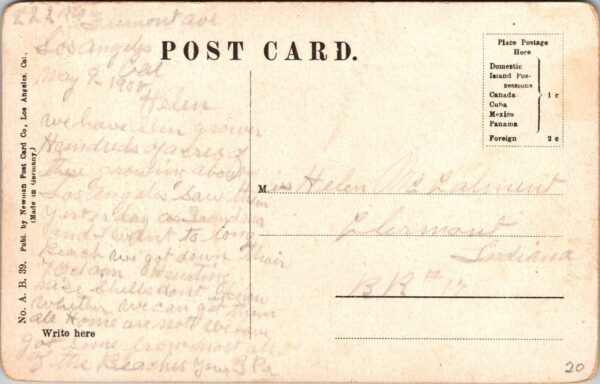 222 Fremont ave
Los Angels
Cal
May 2 1908
Helen
we have seen grown
Hundreds of acres of
these growing above
Los Angeles saw them
yesterday as Laura
and I went to long
Beach we got down their
7 oclam Hunting
nise shells dont know
whether we can get them
all Home are not we have
got some from most all
of the Beaches your G Pa
POST CARD.
Place Postage
Here
Domestic
Island Pos-
sessions
Canada
Cuba
Mexico
Panama
1 c
Foreign 2 c
No. A. B. 39. Publ. by Newman Post Card Co., Los Angeles, Cal.,
(Made in Germany)
Miss Helen
Clermont
Indiana
RR # 17
Write here
20